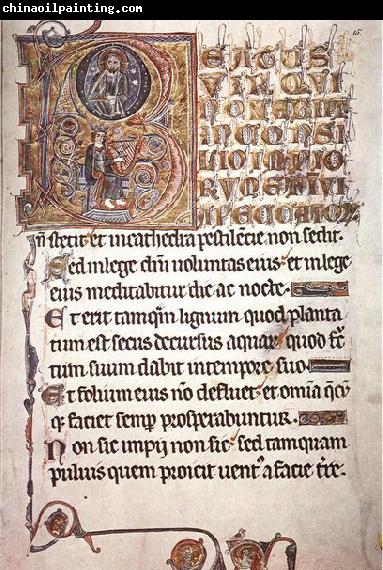 chinaoilpainting.com
15.
B EATUS
VIR QVI
NON ABIIT
IN CONSI
LIO IMPIO
RVM ET IN VI
A PECCATOR
n̄ stetit et in cathedra pestilētie non sedit.
Sed in lege dn̄i uoluntas eius et in lege
eius meditabitur die ac nocte.
Et erit tamq̄m lignum quod planta
tum est secus decursus aquar quod fc̄
tum suum dabit in tempore suo
Et folium eius nō defluet et om̄ia q̄cq
q faciet semp prosperabuntur.
Non sic impij non sic sed tamquam
puluis quem proicit uent a facie tr̄e.